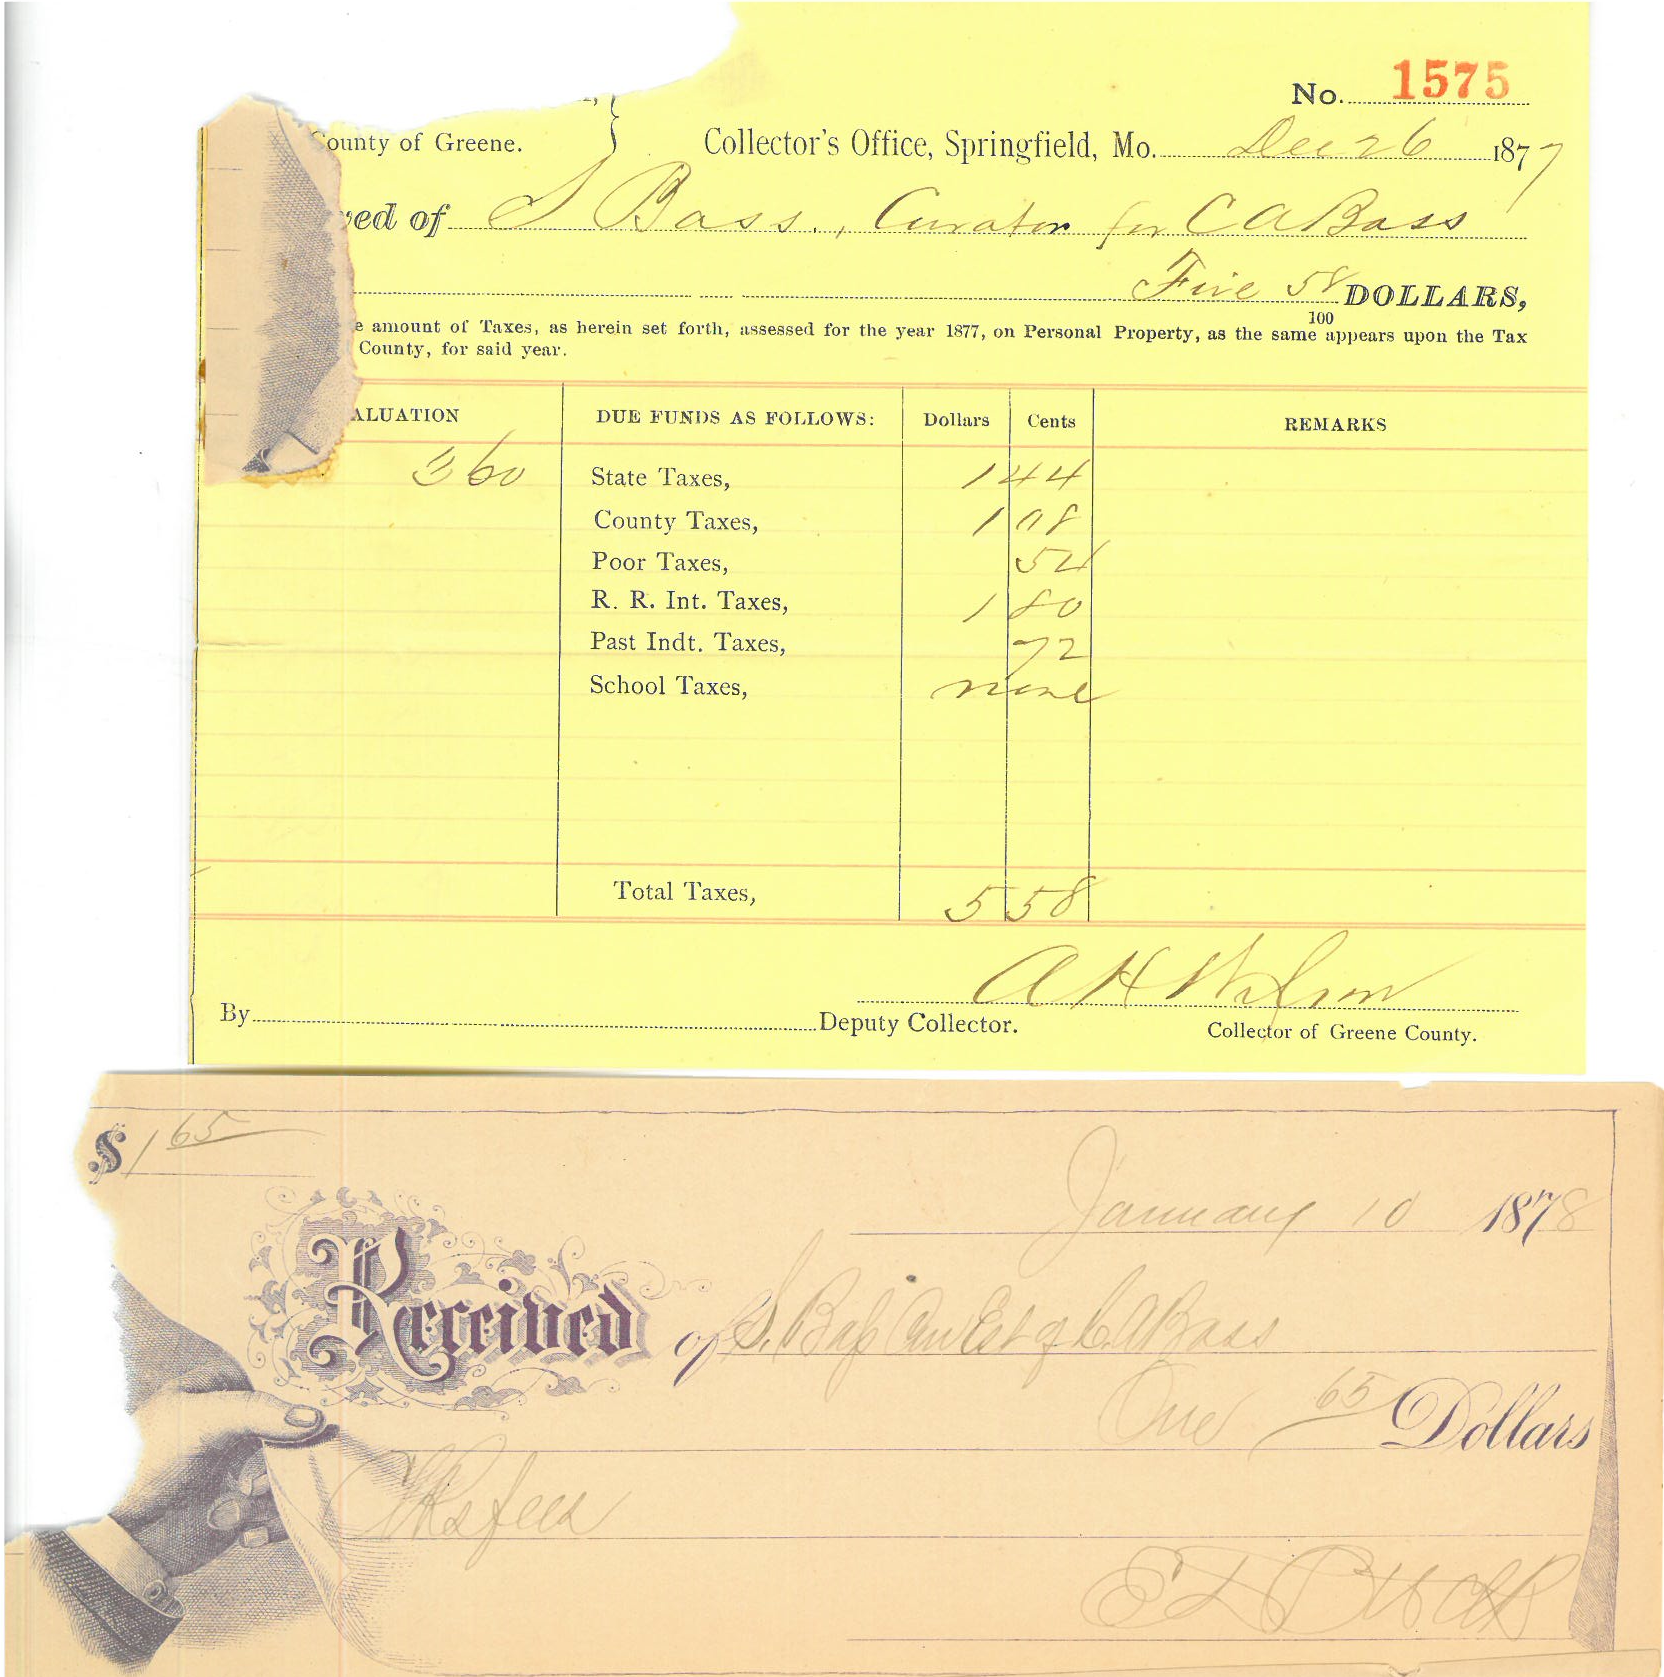 No. 1575
ounty of Greene.
Collector's Office, Springfield, Mo. Dec 26 1877
ved of S Bass., Curator for C A Bass
Five 58/100 DOLLARS,
e amount of Taxes, as herein set forth, assessed for the year 1877, on Personal Property, as the same appears upon the Tax
County, for said year.
ALUATION DUE FUNDS AS FOLLOWS: Dollars Cents REMARKS
360 State Taxes, 1 44
County Taxes, 1 08
Poor Taxes, 54
R. R. Int. Taxes, 1 80
Past Indt. Taxes, 72
School Taxes, none
Total Taxes, 5 58
A H Wilson
By Deputy Collector. Collector of Greene County.
$ 1 65
January 10 1878
Received of S. Bass Cur Est of C. A Bass
One 65 Dollars